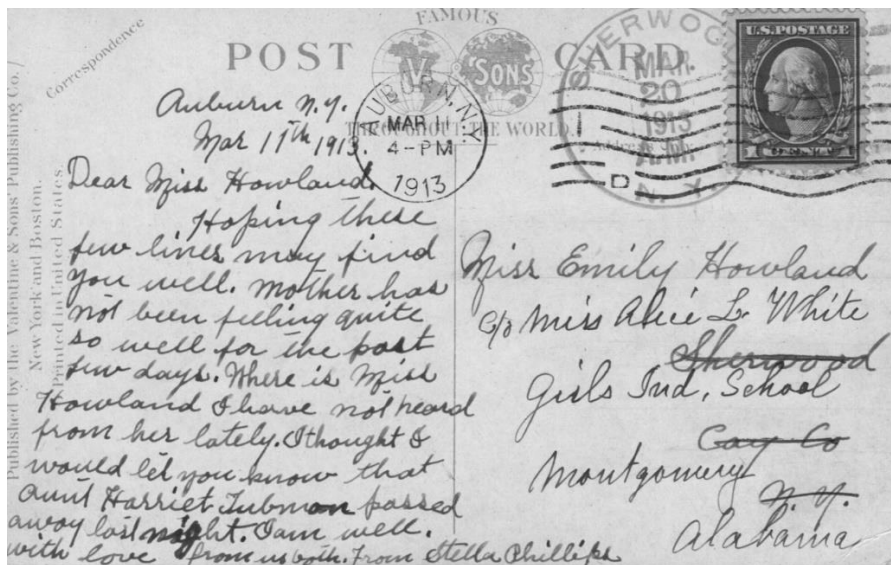 Correspondence
FAMOUS
POST CARD.
V & SONS
THROUGHOUT THE WORLD.
Address Only.
Published by the Valentine & Sons' Publishing Co.
New York and Boston.
Printed in United States.
AUBURN, N.Y.
MAR 11
4-PM
1913
SHERWOOD
MAR
20
1913
A.M.
N.Y.
D
U.S. POSTAGE
1 CENT 1
Auburn N.Y.
Mar 11th 1913.
Dear Miss Howland.
Hoping these
few lines may find
you well. Mother has
not been feeling quite
so well for the past
few days. Where is Miss
Howland I have not heard
from her lately. I thought I
would let you know that
aunt Harriet Tubman passed
away last night. I am well.
with love from us both. From Stella Phillips
Miss Emily Howland
c/o Miss Alice L. White
Sherwood
Girls Ind, School
Cay Co
Montgomery
N.Y.
Alabama